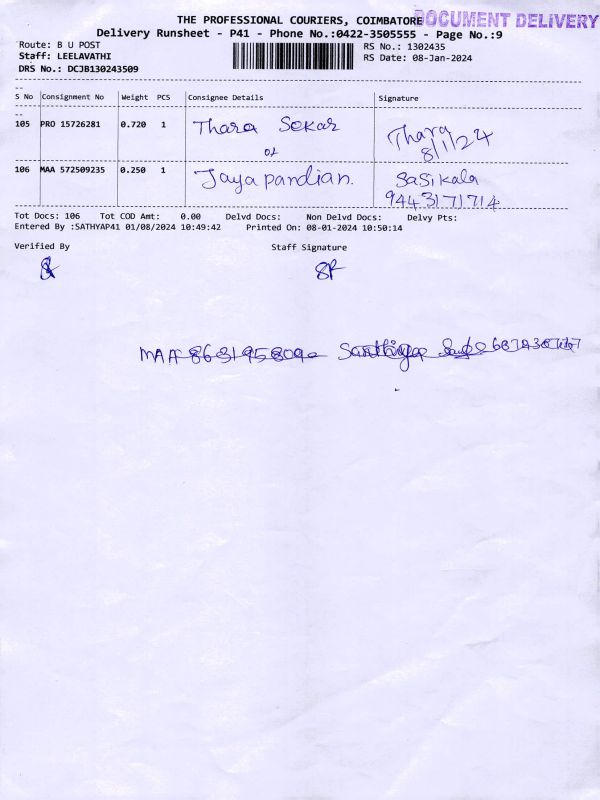 THE PROFESSIONAL COURIERS, COIMBATORE DOCUMENT DELIVERY
Delivery Runsheet - P41 - Phone No.:0422-3505555 - Page No.:9
Route: B U POST RS No.: 1302435
Staff: LEELAVATHI RS Date: 08-Jan-2024
DRS No.: DCJB130243509
S No Consignment No Weight PCS Consignee Details Signature
105 PRO 15726281 0.720 1 Thara Sekar Thara
8/1/24
106 MAA 572509235 0.250 1 Jaya pandian. Sasikala
9443171714
Tot Docs: 106 Tot COD Amt: 0.00 Delvd Docs: Non Delvd Docs: Delvy Pts:
Entered By :SATHYAP41 01/08/2024 10:49:42 Printed On: 08-01-2024 10:50:14
Verified By Staff Signature
MAA 863195809 Santhiya